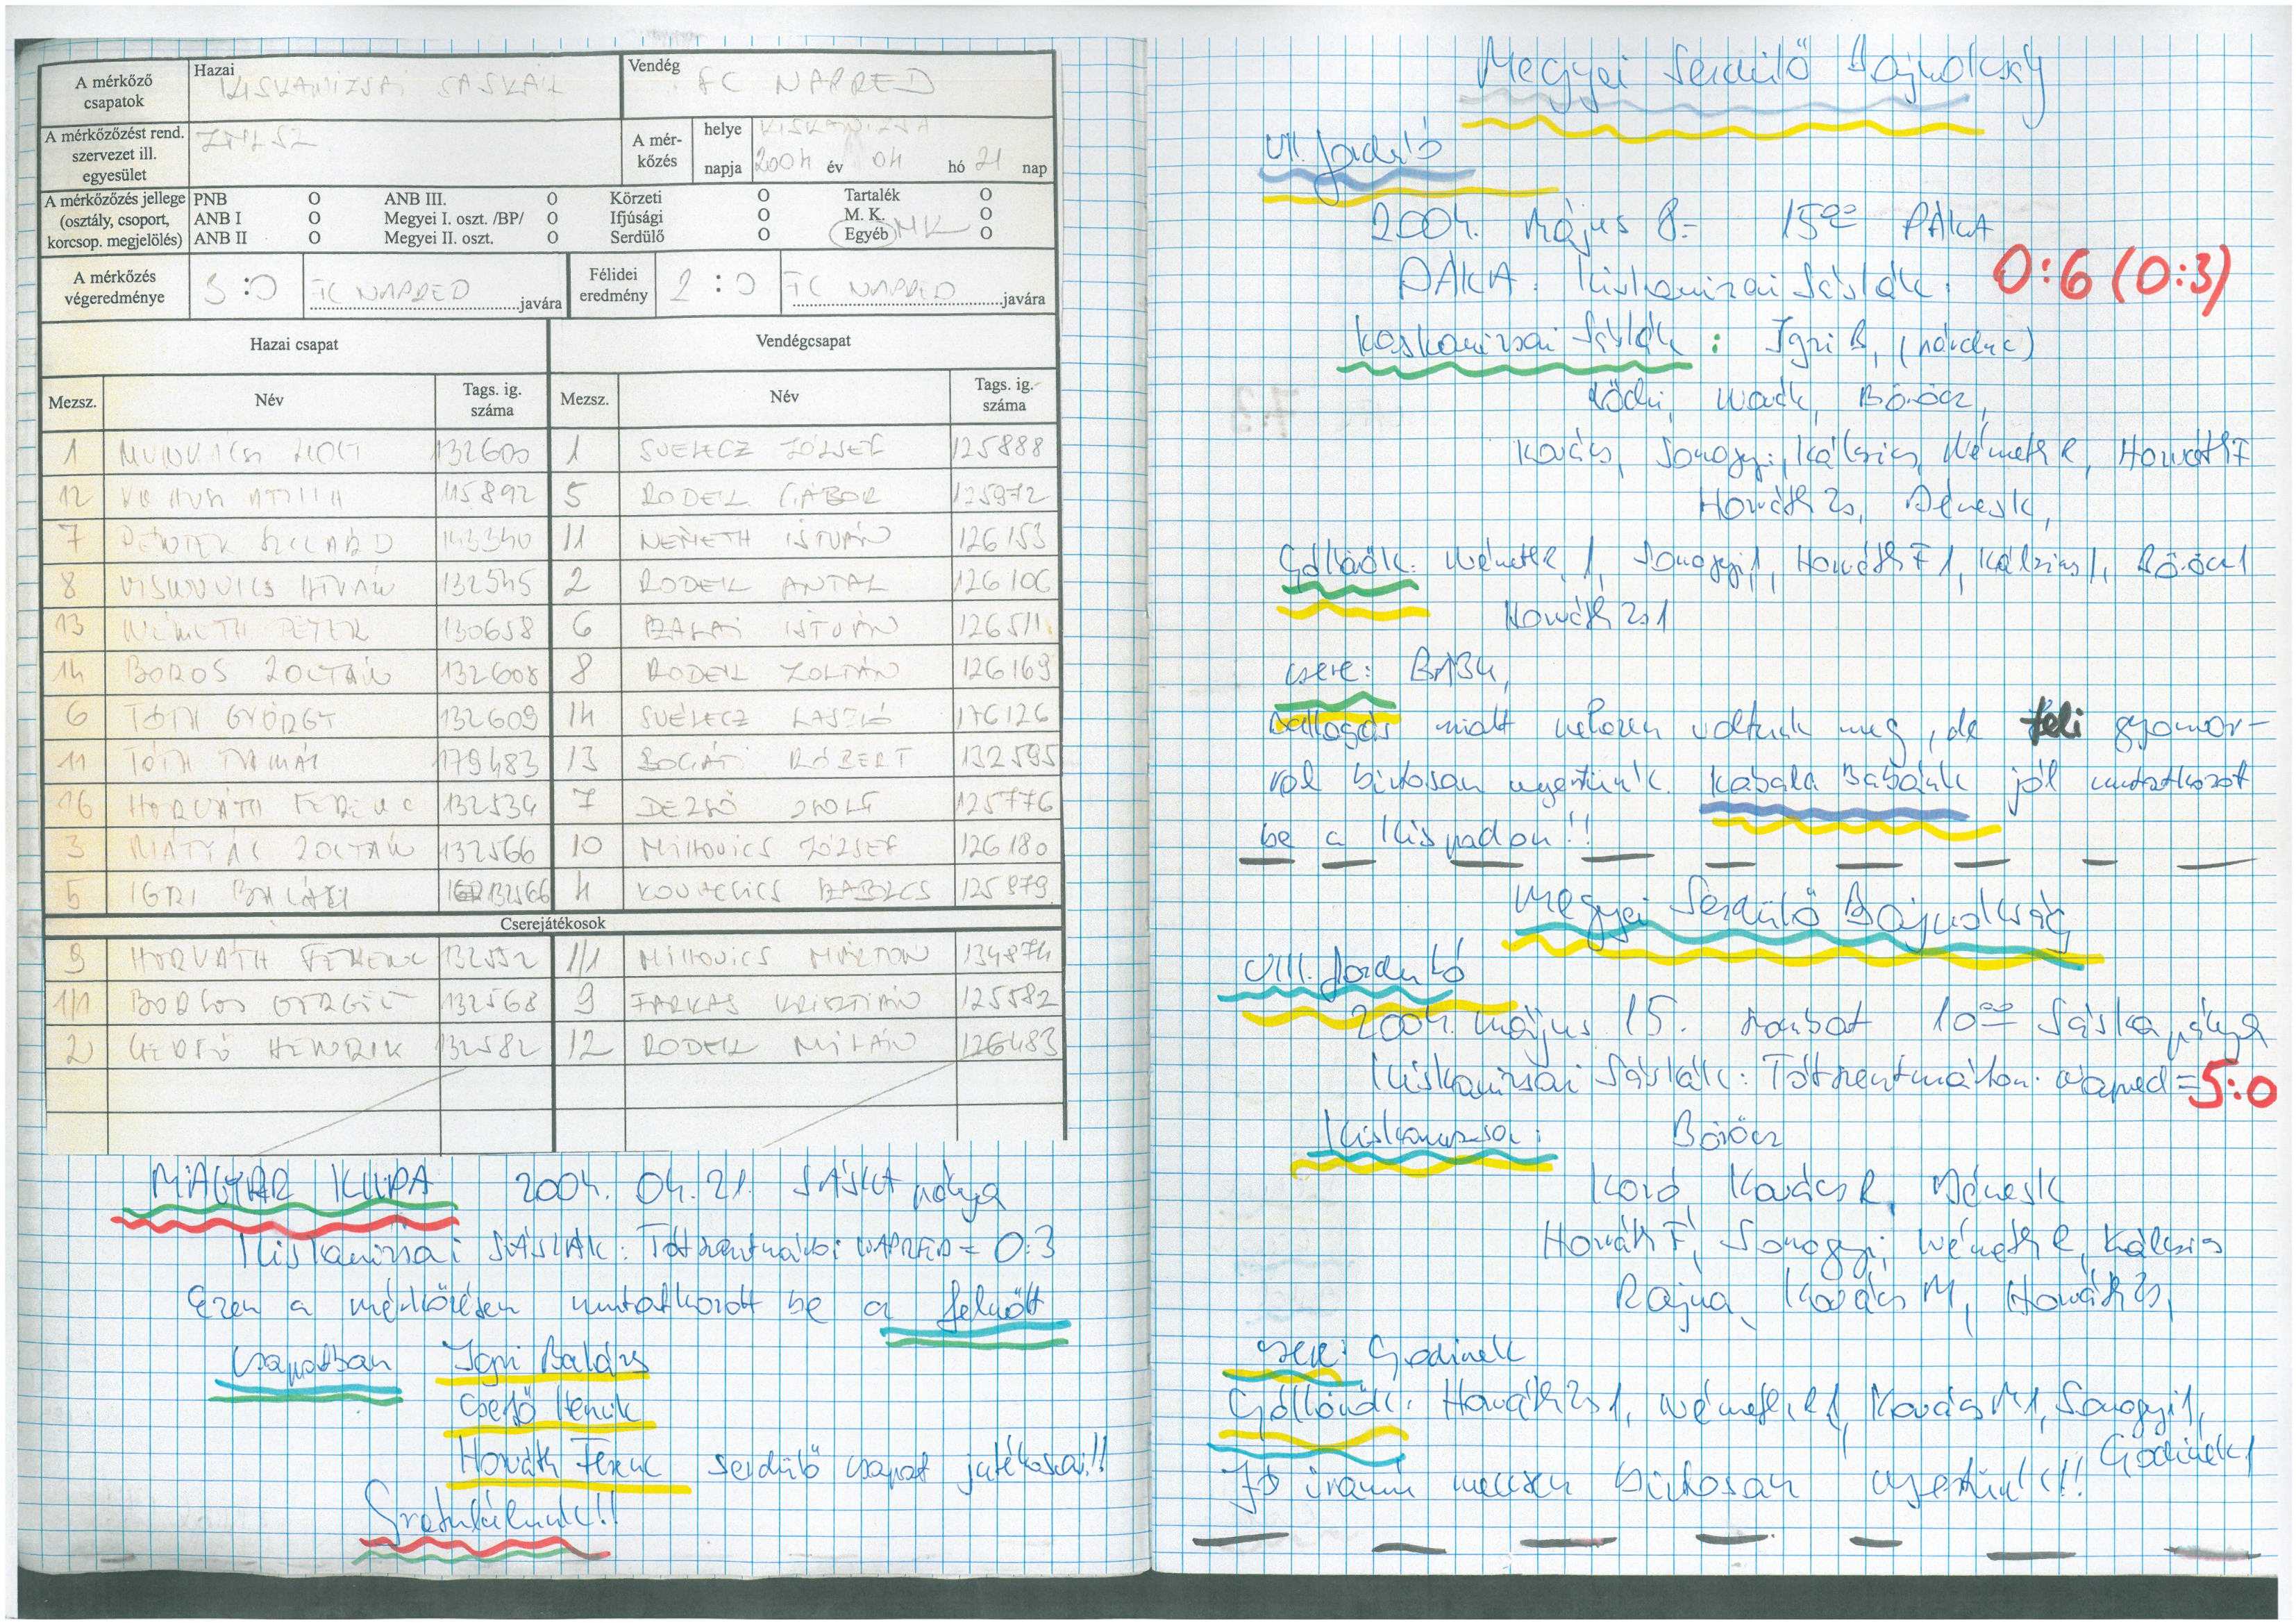 A mérkőző csapatok
Hazai
KISKANIZSAI SÁSKÁK
Vendég
FC NAPRED
A mérkőzőzést rend. szervezet ill. egyesület
ZMLSZ
A mérkőzés
helye
KISKANIZSA
napja
2004 év 04 hó 21 nap
A mérkőzőzés jellege (osztály, csoport, korcsop. megjelölés)
PNB O ANB III. O Körzeti O Tartalék O
ANB I O Megyei I. oszt. /BP/ O Ifjúsági O M. K. O
ANB II O Megyei II. oszt. O Serdülő O Egyéb MK O
A mérkőzés végeredménye
3 : 0 FC NAPRED javára
Félidei eredmény
2 : 0 FC NAPRED javára
Hazai csapat Vendégcsapat
Mezsz. Név Tags. ig. száma Mezsz. Név Tags. ig. száma
1 ZSOLT 132600 1 SVELECZ JÓZSEF 125888
12 ATTILA 115892 5 RODEK GÁBOR 125972
7 SZILÁRD 143340 11 NÉMETH ISTVÁN 126153
8 ISTVÁN 132545 2 RODEK ANTAL 126106
13 NÉMETH PÉTER 130658 6 ISTVÁN 126511
14 BOROS ZOLTÁN 132608 8 RODEK ZOLTÁN 126169
6 TÓTH GYÖRGY 132609 14 SVÉLECZ LÁSZLÓ 176126
11 TÓTH TAMÁS 179483 13 BOGÁTI RÓBERT 132595
16 HORVÁTH FERENC 132534 7 DEZSŐ ZSOLT 125776
3 MÁTYÁS ZOLTÁN 132566 10 MIHOVICS JÓZSEF 126180
5 IGRI BALÁZS 132566 4 SZABOLCS 125879
Cserejátékosok
9 HORVÁTH FERENC 132552 1/1 MIHOVICS MÁRTON 134874
1/1 GERGŐ 132568 9 FARKAS KRISZTIÁN 125582
2 CSERFŐ HENRIK 132582 12 RODEK MILÁN 126483
MAGYAR KUPA 2004. 04. 21. SÁSKA pálya
Kiskanizsai SÁSKÁK : Tótszentmártoni NAPRED = 0:3
Ezen a mérkőzésen mutatkozott be a felnőtt
csapatban Igri Balázs
Cserfő Henrik
Horváth Ferenc serdülő csapat játékosai!!
Gratulálunk!!
Megyei Serdülő Bajnokság
VII. forduló
2004. május 8- 15⁰⁰ PÁKA
PÁKA : Kiskanizsai Sáskák : 0:6 (0:3)
Kiskanizsai Sáskák : Igri B,
Ködri, Böröcz,
Kovács, Somogyi, Kálcsics, Németh R, Horváth F
Horváth Zs, Dénes K,
Góllövők: Németh R 1, Somogyi 1, Horváth F 1, Kálcsics 1, Böröcz 1
Horváth Zs 1
csere: BABA,
Ballagás miatt nehezen voltunk meg, de teli gyomor-
ral biztosan nyertünk. Kabala Babánk jól mutatkozot
be a Kispadon!!
Megyei Serdülő Bajnokság
VIII. forduló
2004. május 15. szombat 10⁰⁰ Sáska pálya
Kiskanizsai Sáskák : Tótszentmárton. Napred = 5:0
Kiskanizsa: Böröcz
Kovács R, Dénes K
Horváth F, Somogyi, Németh R, Kálcsics
Rajna, Kovács M, Horváth Zs,
csere: Godinek
Góllövők: Horváth Zs 1, Németh R 1, Kovács M 1, Somogyi 1,
Godinek 1
Jó iramú meccsen biztosan nyertünk!!